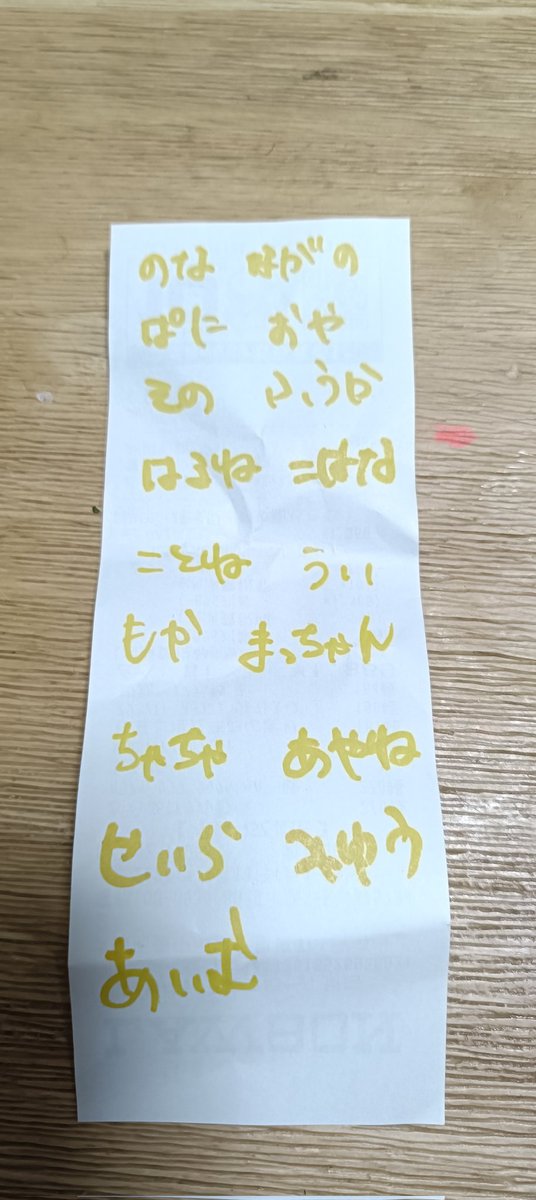 のな ほがの
ぱに おや
その ふうか
はるね こはな
ことね うい
もか まっちゃん
ちゃちゃ あやね
せいら みゆう
あいむ